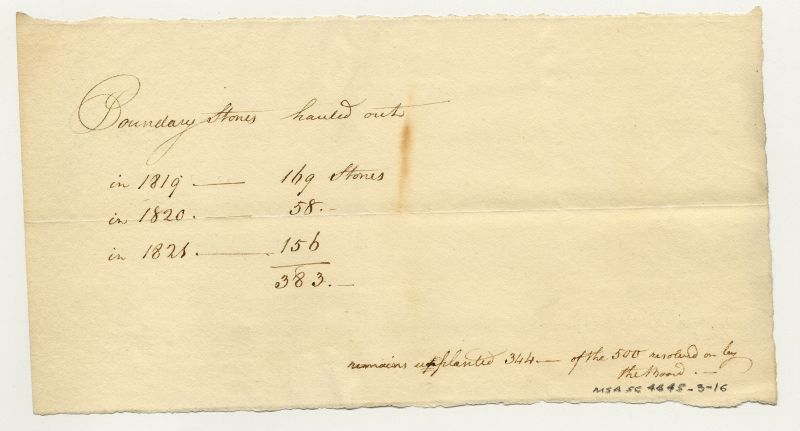 Boundary Stones hauled out
in 1819 — 169 Stones
in 1820. — 58. —
in 1821. — 156
383. —
remains unplanted 344 — of the 500 resolved on by
the Board. —
MSA SC 4645-3-16